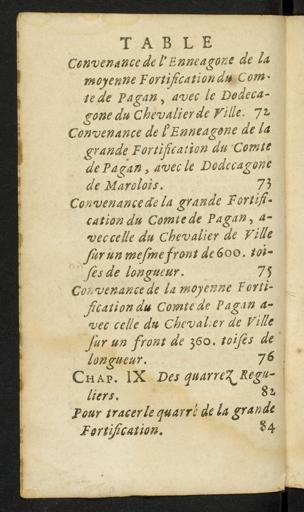 TABLE
Convenance de l'Enneagone de la
moyenne Fortification du Com-
te de Pagan, avec le Dodeca-
gone du Chevalier de Ville. 72
Convenance de l'Enneagone de la
grande Fortification du Comte
de Pagan, avec le Dodecagone
de Marolois. 73
Convenance de la grande Fortifi-
cation du Comte de Pagan, a-
vec celle du Chevalier de Ville
sur un mesme front de 600. toi-
ses de longueur. 75
Convenance de la moyenne Forti-
fication du Comte de Pagan a-
vec celle du Chevalier de Ville
sur un front de 360. toises de
longueur. 76
CHAP. IX Des quarrez Regu-
liers. 82
Pour tracer le quarré de la grande
Fortification. 84